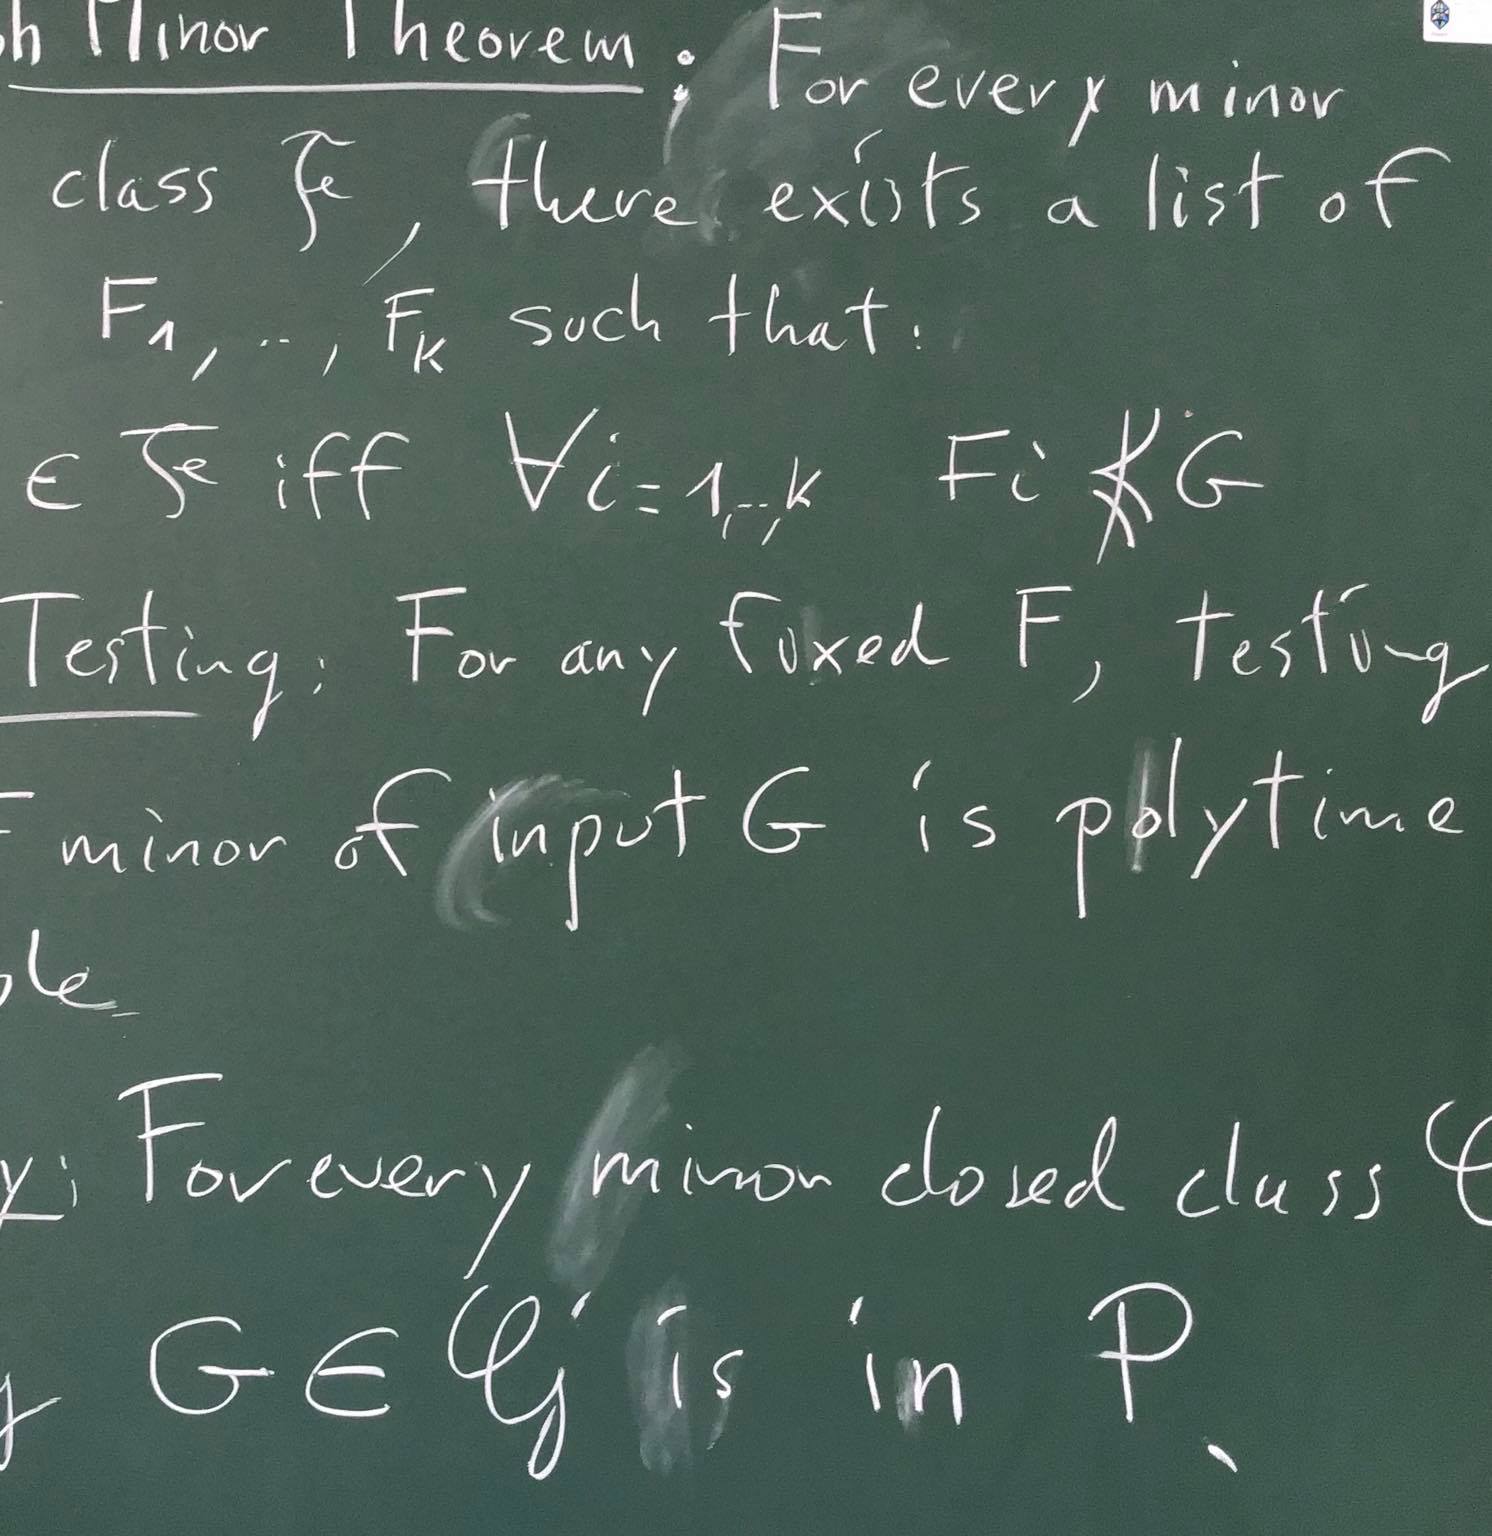 h Minor Theorem: For every minor
class ℱ, there exists a list of
F₁, .., Fₖ such that:
∈ ℱ iff ∀i=1,..,k Fi ⋠ G
Testing: For any fixed F, testing
F minor of input G is polytime
ble
y: For every minor closed class 𝒢
g G ∈ 𝒢 is in P.